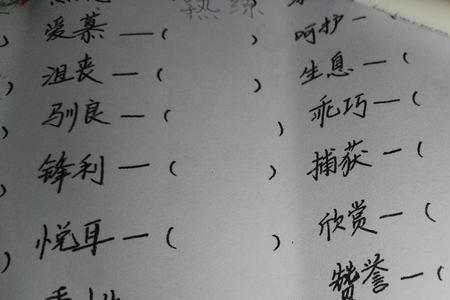 熟练
爱慕—( ) 呵护—
沮丧—( ) 生息—(
驯良—( ) 乖巧—(
锋利—( ) 捕获—(
悦耳—( ) 欣赏—(
赞誉—(